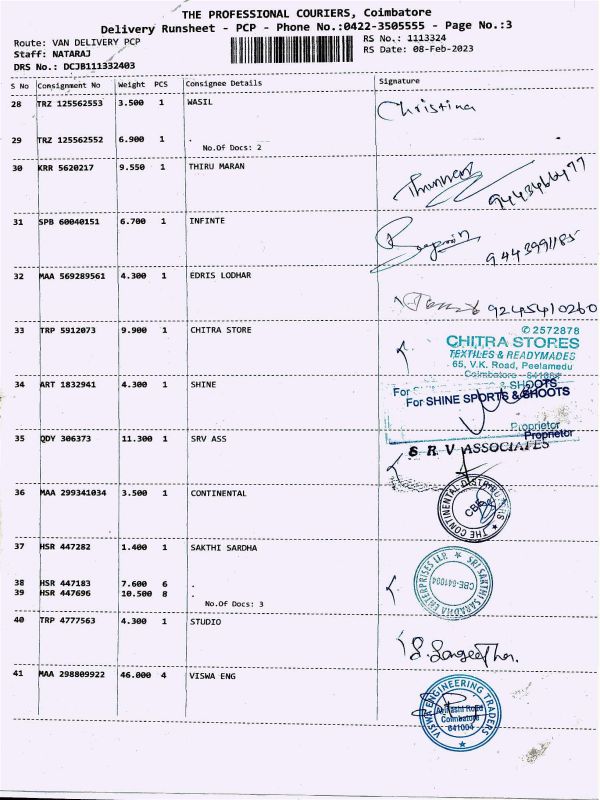 THE PROFESSIONAL COURIERS, Coimbatore
Delivery Runsheet - PCP - Phone No.:0422-3505555 - Page No.:3
Route: VAN DELIVERY PCP
RS No.: 1113324
Staff: NATARAJ
RS Date: 08-Feb-2023
DRS No.: DCJB111332403
S No Consignment No Weight PCS Consignee Details Signature
28 TRZ 125562553 3.500 1 WASIL Christina
29 TRZ 125562552 6.900 1 .
No.Of Docs: 2
30 KRR 5620217 9.550 1 THIRU MARAN
31 SPB 60040151 6.700 1 INFINTE
9443991185
32 MAA 569289561 4.300 1 EDRIS LODHAR
9245410260
33 TRP 5912073 9.900 1 CHITRA STORE
✆ 2572878
CHITRA STORES
TEXTILES & READYMADES
65, V.K. Road, Peelamedu
Coimbatore - 641004
34 ART 1832941 4.300 1 SHINE
For SHINE SPORTS & SHOOTS
Proprietor
Proprietor
35 QDY 306373 11.300 1 SRV ASS
S R V ASSOCIATES
36 MAA 299341034 3.500 1 CONTINENTAL
CBE
37 HSR 447282 1.400 1 SAKTHI SARDHA
SRI SAKTHI SARADHA ENTERPRISES LLP.
CBE-641004
38 HSR 447183 7.600 6 .
39 HSR 447696 10.500 8 .
No.Of Docs: 3
40 TRP 4777563 4.300 1 STUDIO
S. Sangeetha.
41 MAA 298809922 46.000 4 VISWA ENG
VISWA ENGINEERING TRADERS
Avinashi Road
Coimbatore
641004